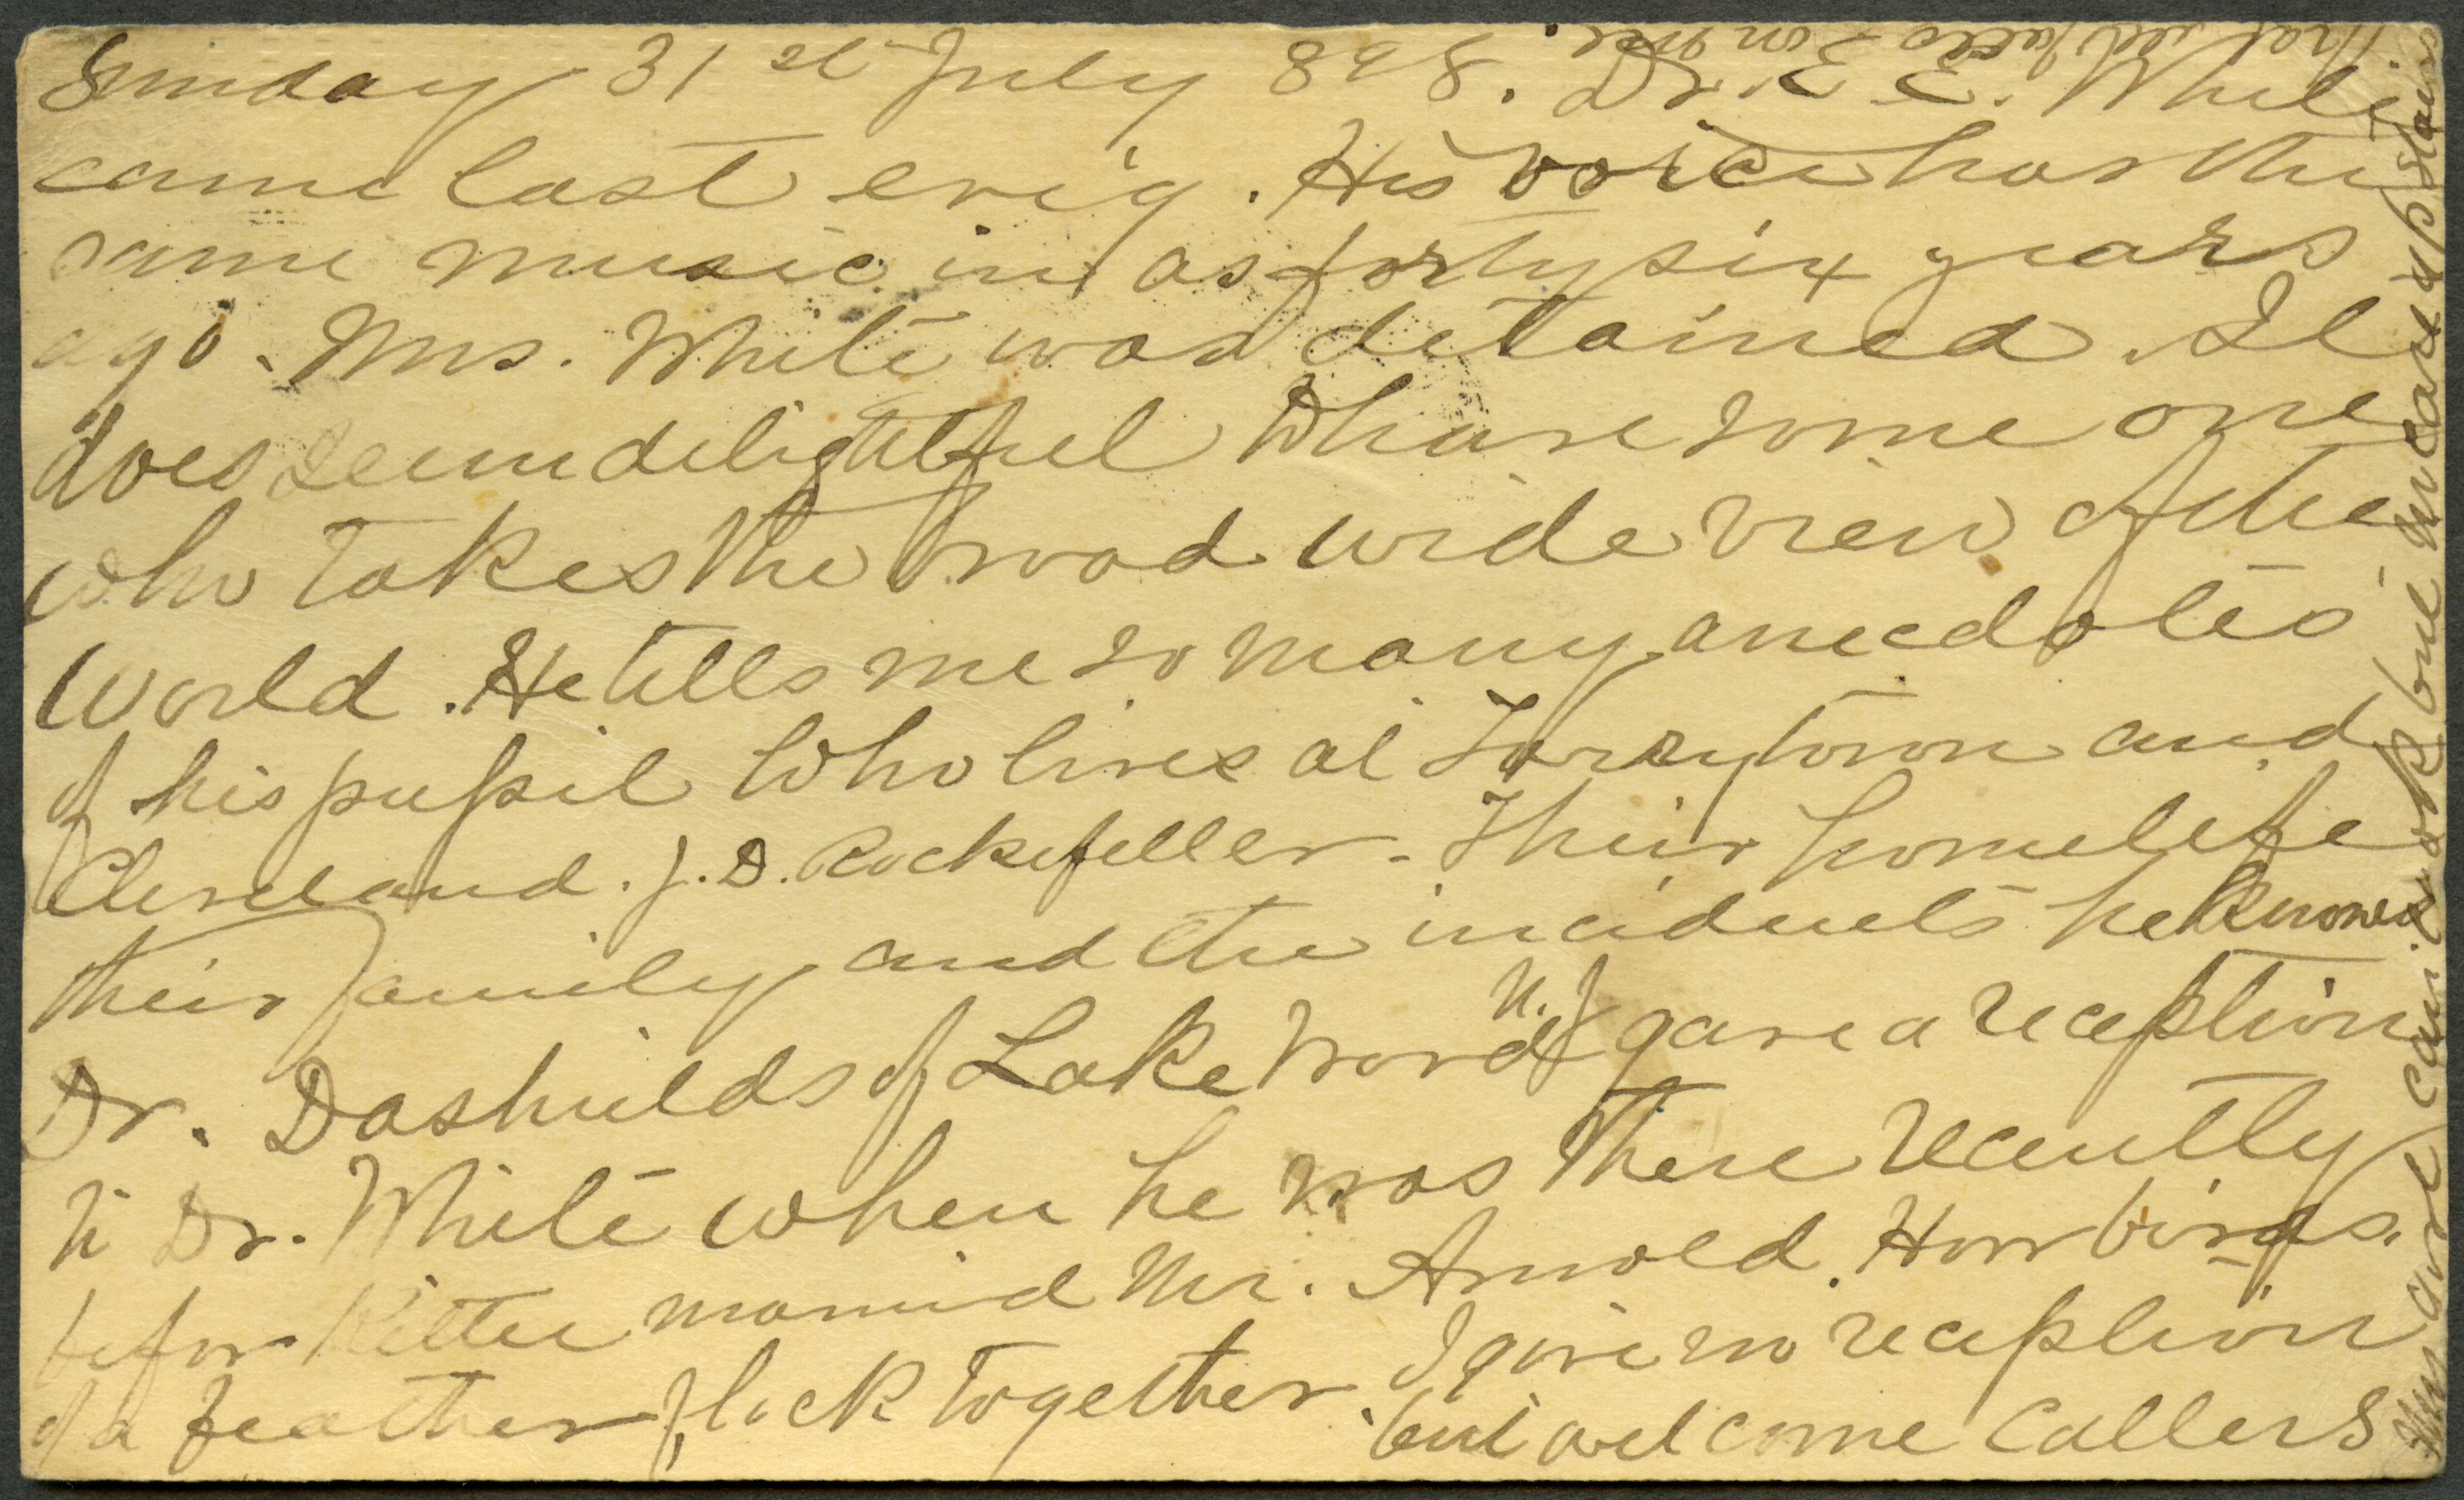 Sunday 31st July 898. Dr. E. E. White
came last ev'g. His voice has the
same music in as forty six years
ago. Mrs. White was detained. It
does seem delightful to have some one
who takes the broad wide view of the
world. He tells me so many anecdotes
of his pupil who lives at Tarrytown and
Cleveland. J. D. Rockefeller. Their home life
their family and the incidents he knows
Dr. Dashields of Lake wood N. J. gave a reception
to Dr. White when he was there recently
before Kittie married Mr. Arnold. How birds
of a feather flock together. I give no reception
but welcome callers
My girl can cook but not care upstairs
that all falls on me.